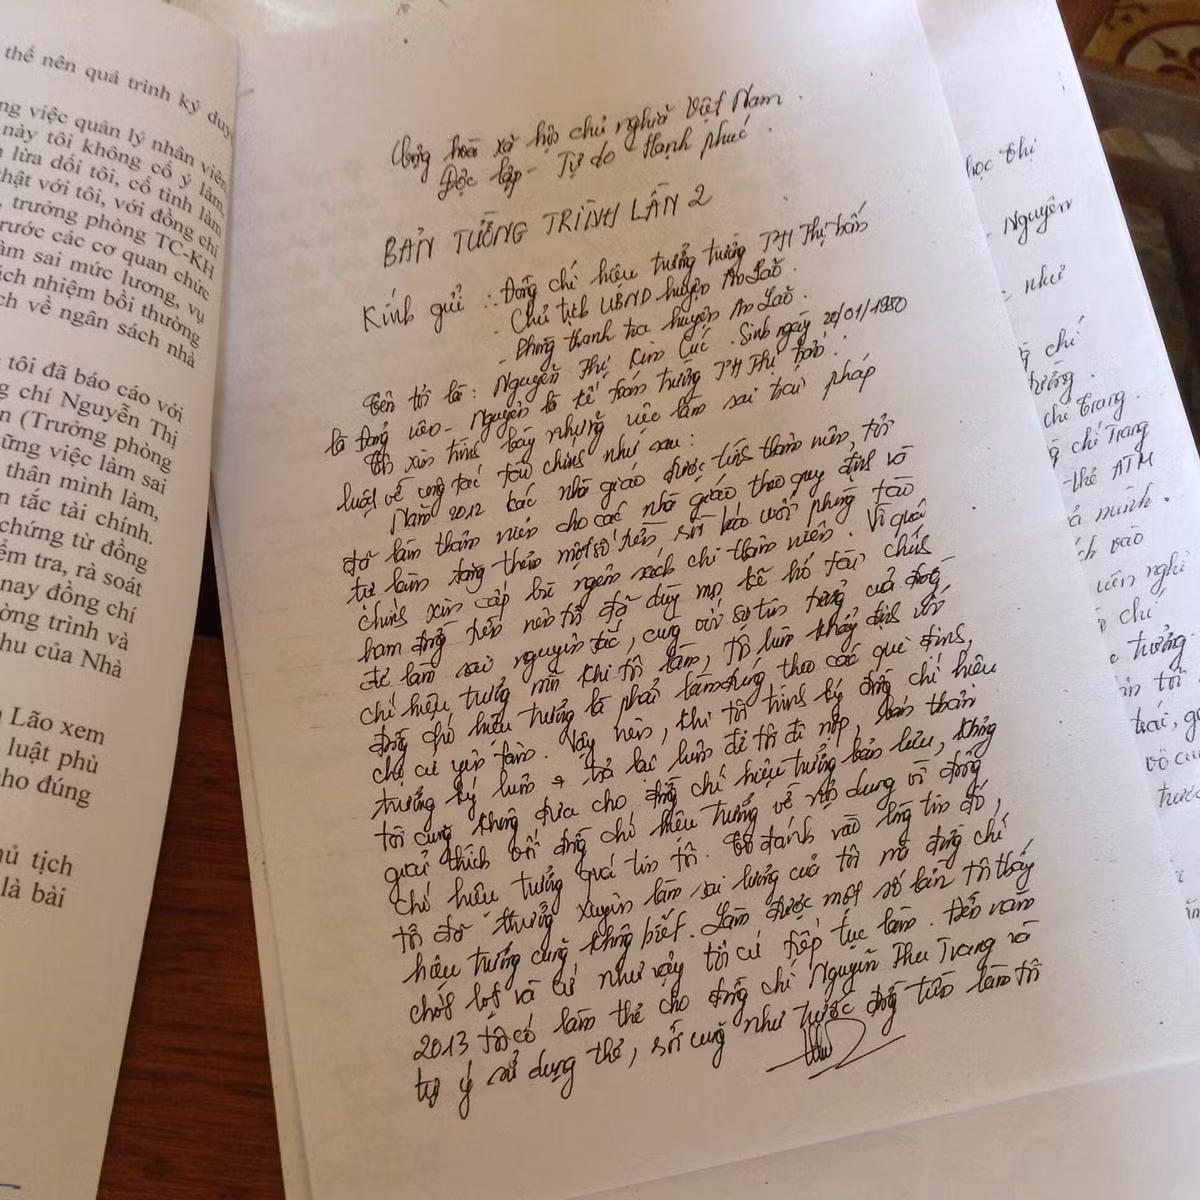 thể nên quá trình ký duy
ng việc quản lý nhân viên
này tôi không cố ý làm,
lừa dối tôi, cố tình làm
thật với tôi, với đồng chí
, trưởng phòng TC-KH
rước các cơ quan chức
àm sai mức lương, vụ
ách nhiệm bồi thường
ch về ngân sách nhà
tôi đã báo cáo với
g chí Nguyễn Thị
n (Trưởng phòng
ững việc làm sai
thân mình làm,
n tắc tài chính.
chứng từ đồng
ểm tra, rà soát
nay đồng chí
ường trình và
hu của Nhà
Lão xem
luật phù
ho đúng
hủ tịch
là bài
Cộng hòa xã hội chủ nghĩa Việt Nam.
Độc lập - Tự do - Hạnh phúc.
BẢN TƯỜNG TRÌNH LẦN 2
Kính gửi: - Đồng chí hiệu trưởng trường TH Thị trấn
- Chủ tịch UBND huyện An Lão.
- Phòng thanh tra huyện An Lão.
Tên tôi là: Nguyễn Thị Kim Cúc. Sinh ngày /01/1980
là Đảng viên - Nguyên là kế toán trường TH Thị trấn.
Tôi xin trình bày những việc làm sai trái pháp
luật về công tác tài chính như sau:
Năm 2012 các nhà giáo được tính thâm niên, tôi
đã làm thâm niên cho các nhà giáo theo quy định và
tự làm tăng thêm một số tiền so báo với phòng tài
chính xin cấp bù ngân sách chi thâm niên. Vì quá
ham đồng tiền nên tôi đã dùng mọi kẽ hở tài chính
để làm sai nguyên tắc, cùng với sự tin tưởng của đồng
chí hiệu trưởng mỗi khi tôi làm, tôi luôn khẳng định với
đồng chí hiệu trưởng là phải làm đúng theo các qui định,
chị cứ yên tâm. Vậy nên, khi tôi trình ký đồng chí hiệu
trưởng ký luôn và trả lại luôn để tôi đi nộp, bản thân
tôi cũng không đưa cho đồng chí hiệu trưởng bản lưu, không
giải thích với đồng chí hiệu trưởng về nội dung vì đồng
chí hiệu trưởng quá tin tôi. Tôi đánh vào lòng tin đó,
tôi đã thường xuyên làm sai lương của tôi mà đồng chí
hiệu trưởng cũng không biết. Làm được một số lần tôi thấy
chót lọt và cứ như vậy tôi cứ tiếp tục làm. Đến năm
2013 tôi có làm thẻ cho đồng chí Nguyễn Thu Trang và
tự ý sử dụng thẻ, số cũng như trước đồng tiền làm tôi
học thị
Nguyên
như
chí
chi Trang.
chí Trang
thẻ ATM
mình.
vào
viên nghỉ
chí
trưởng
tôi
trái, g
trước